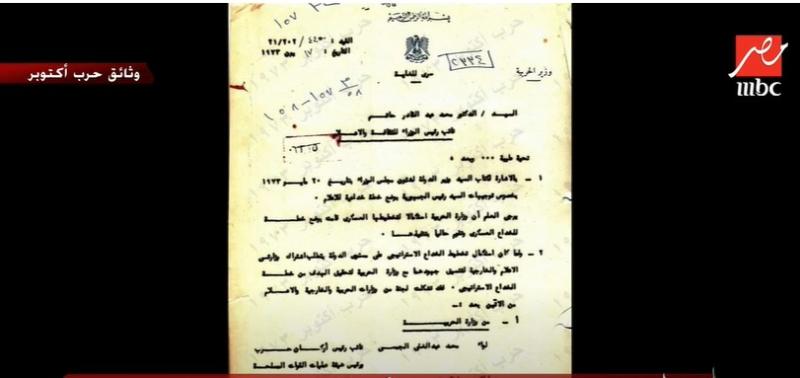 بسم الله الرحمن الرحيم
القيد : ٤٤٣٠ / ٢١/٢٠٢
التاريخ : ١٧ يونيو ١٩٧٣
وزير الحربية
سرى للغاية
٢٣٣٤
١٠٧ - ١٠٨
السيد / الدكتور محمد عبد القادر حاتم
نائب رئيس الوزراء للثقافة والاعلام
تحية طيبة ٠٠٠ وبعد ،
١ - بالاشارة لكتاب السيد وزير الدولة لشئون مجلس الوزراء بتاريخ ٢٠ مايو ١٩٧٣
بخصوص توجيهات السيد رئيس الجمهورية بوضع خطة خداعية للاعلام ٠
يرجى العلم أن وزارة الحربية استكمالا لتخطيطها العسكرى قامت بوضع خطة
للخداع العسكرى وتقوم حاليا بتنفيذها ٠
٢ - ولما كان استكمال تخطيط الخداع الاستراتيجى على مستوى الدولة يتطلب اشتراك وزارتى
الاعلام والخارجية لتنسيق جهودهما مع وزارة الحربية لتحقيق الهدف من خطة
الخداع الاستراتيجى ٠ فقد تشكلت لجنة من وزارات الحربية والخارجية والاعلام
من الاتيين بعد :-
أ - من وزارة الحربية
لواء محمد عبد الغنى الجمسى نائب رئيس أركان حرب
ورئيس هيئة عمليات القوات المسلحة
وثائق حرب أكتوبر
مصر
mbc
حرب أكتوبر ١٩٧٣